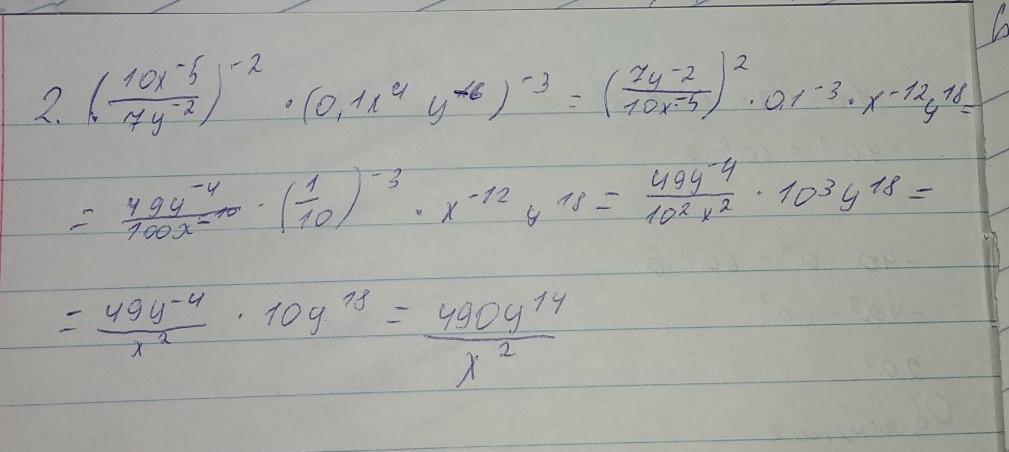 2. (10x⁻⁵/7y⁻²)⁻² · (0,1x⁴ y⁻⁶)⁻³ = (7y⁻²/10x⁻⁵)² · 0,1⁻³ · x⁻¹²y¹⁸ =
= 49y⁻⁴/100x⁻¹⁰ · (1/10)⁻³ · x⁻¹² y¹⁸ = 49y⁻⁴/10² x² · 10³y¹⁸ =
= 49y⁻⁴/x² · 10y¹⁸ = 490y¹⁴/x²